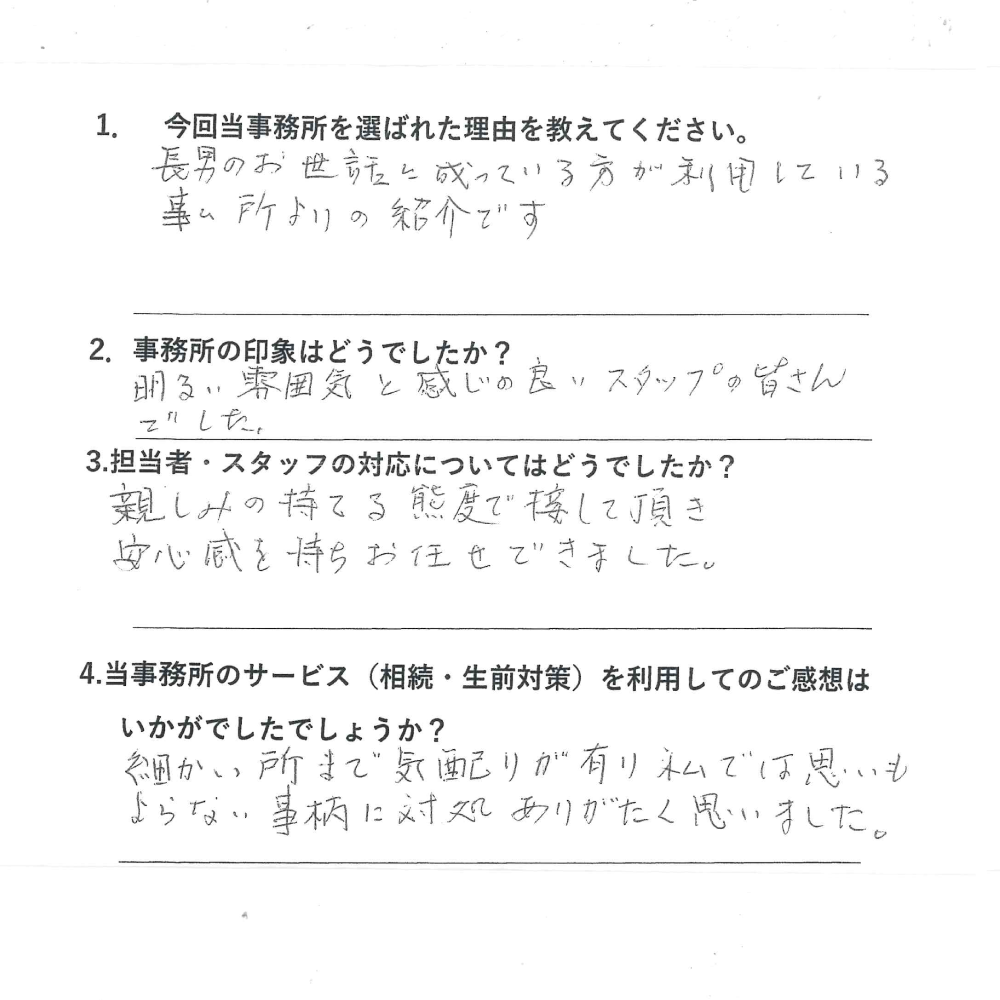 1. 今回当事務所を選ばれた理由を教えてください。
長男のお世話に成っている方が利用している
事ム所よりの紹介です
2. 事務所の印象はどうでしたか？
明るい雰囲気と感じの良いスタップの皆さん
でした。
3.担当者・スタッフの対応についてはどうでしたか？
親しみの持てる態度で接して頂き
安心感を持ちお任せできました。
4.当事務所のサービス（相続・生前対策）を利用してのご感想は
いかがでしたでしょうか？
細かい所まで気配りが有り私では思いも
よらない事柄に対処ありがたく思いました。